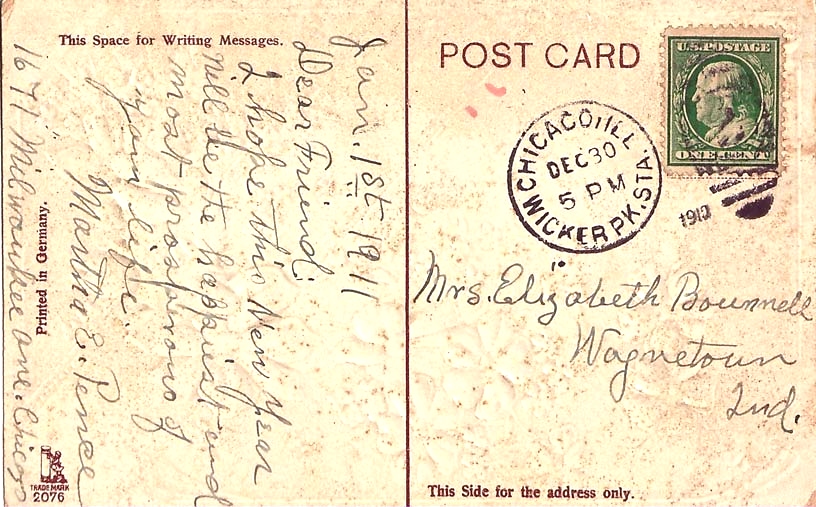 This Space for Writing Messages.
Jan. 1st 1911
Dear Friend:
I hope this New Year
will be the happiest and
most prosperous of
your life.
Martha E. Pence
1677 Milwaukee ave. Chicago
Printed in Germany.
TRADE MARK
2076
POST CARD
U.S. POSTAGE
ONE CENT
CHICAGO, ILL
DEC 30
5 PM
WICKER PK. STA.
1910
Mrs. Elizabeth Bounnell
Waynetown
Ind.
This Side for the address only.